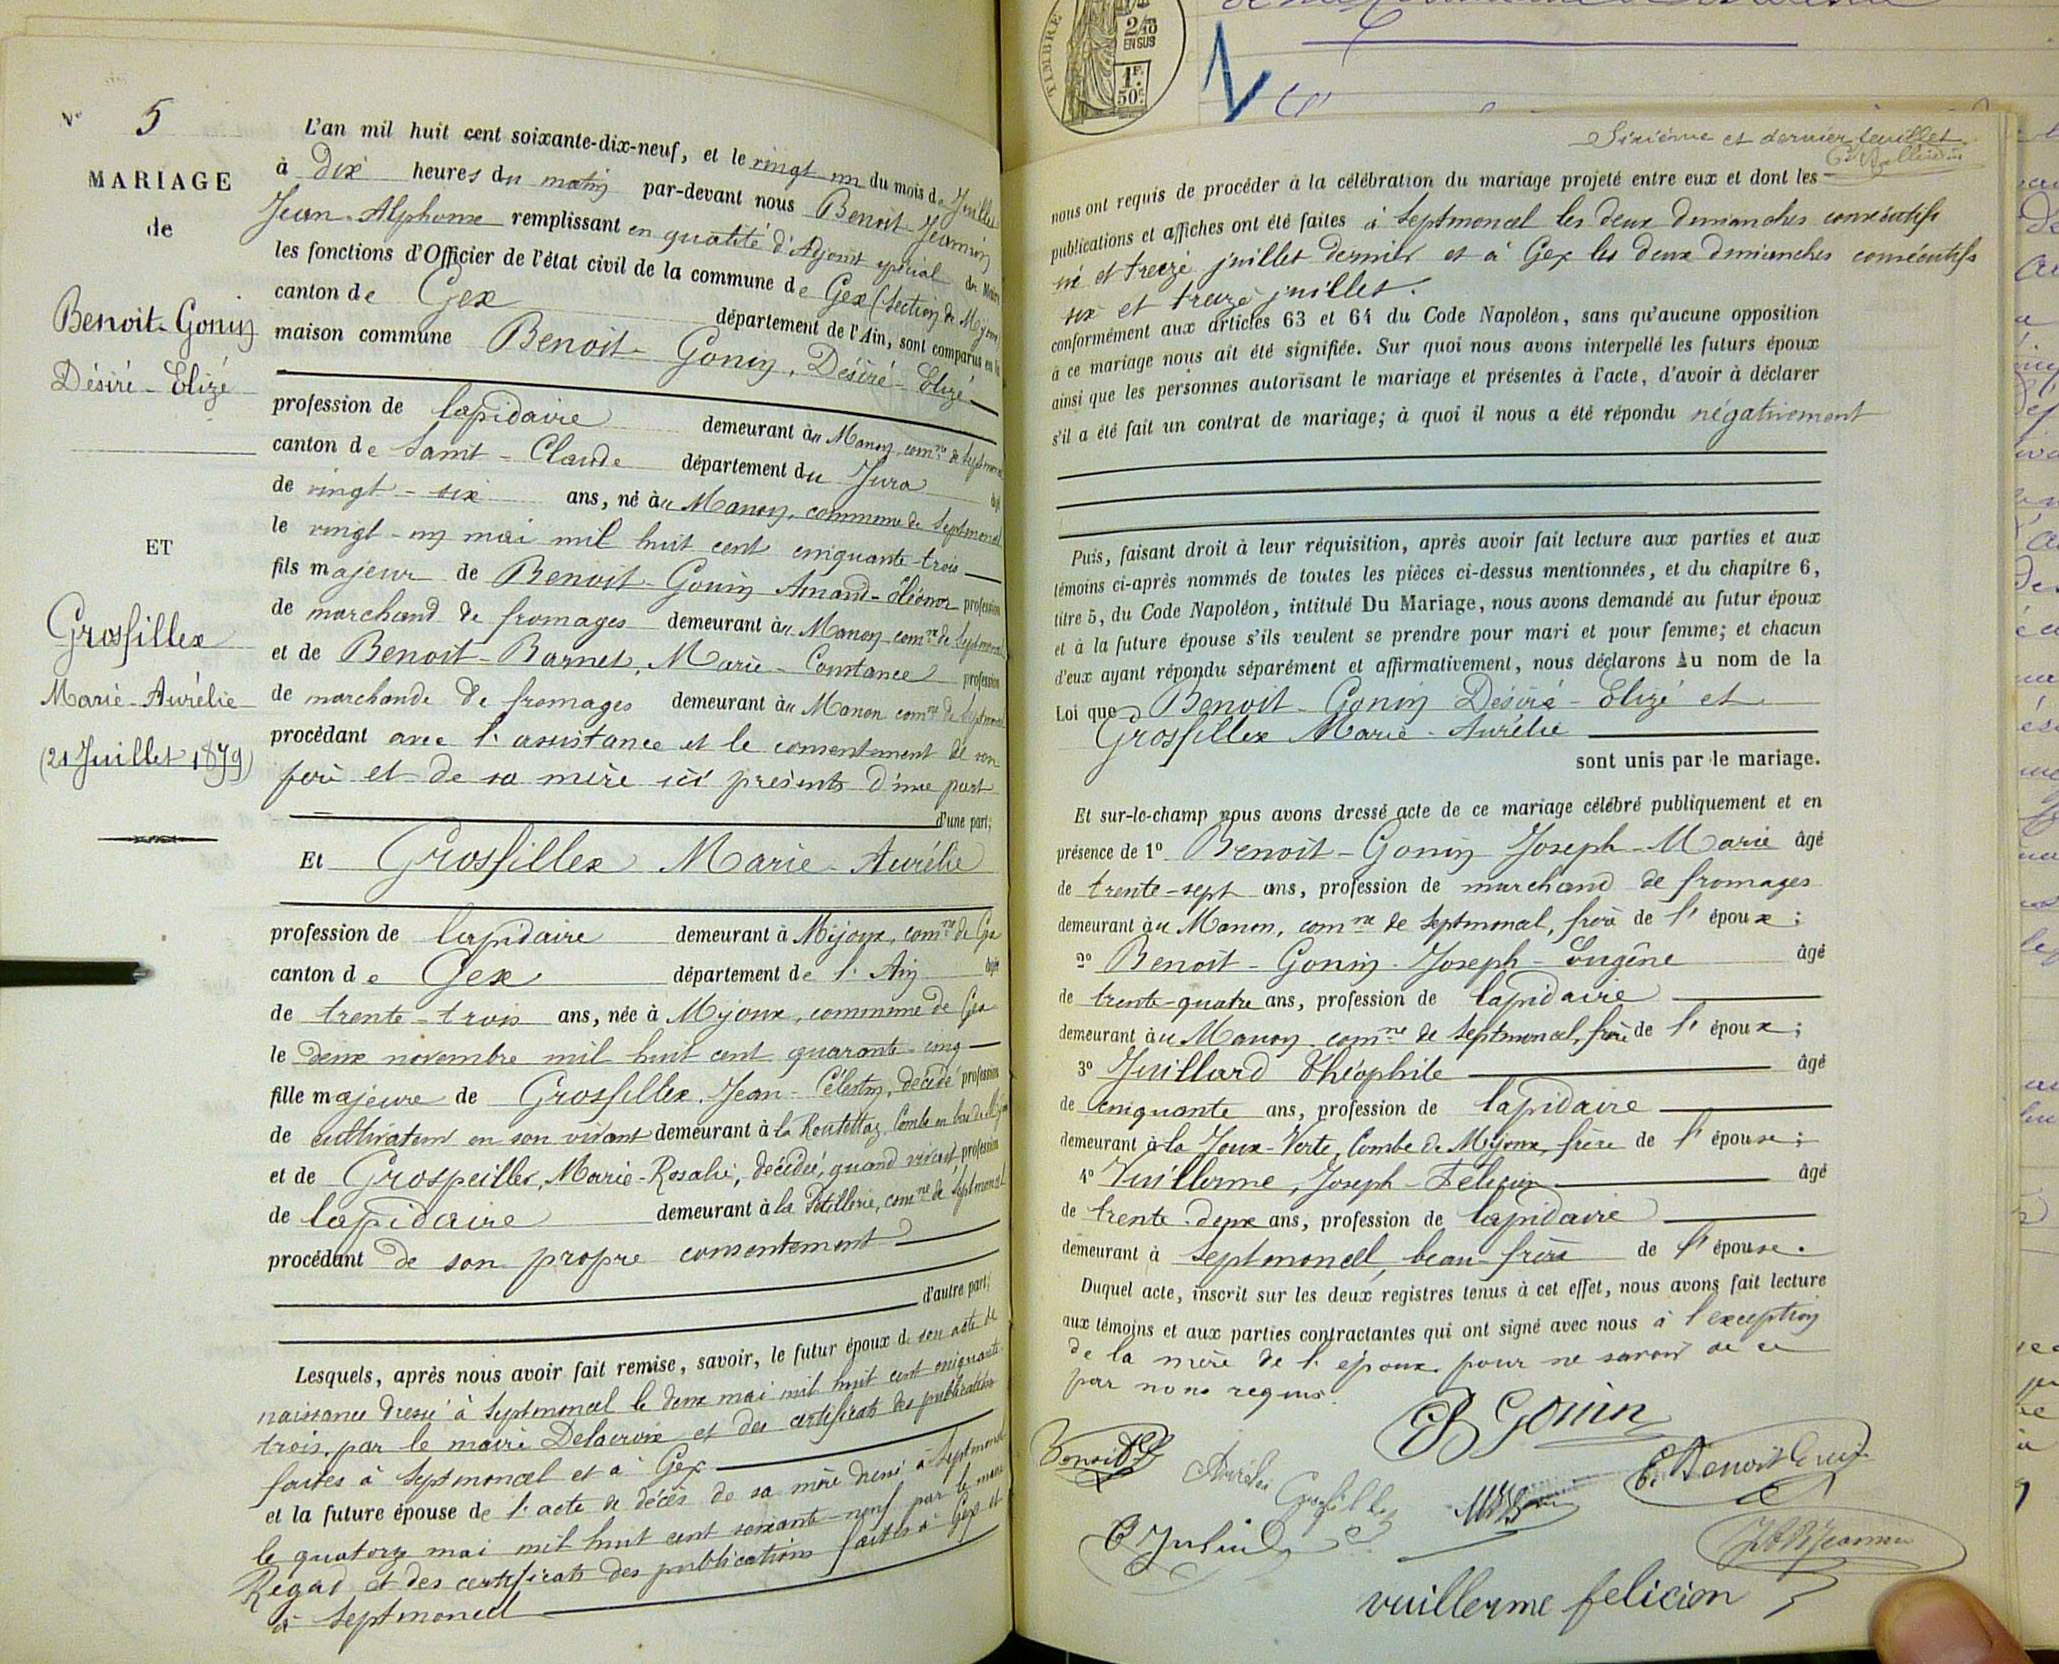 N° 5
MARIAGE
de
Benoit-Gonin
Désiré-Elizé
ET
Grosfillex
Marie-Aurélie
(21 Juillet 1879)
L'an mil huit cent soixante-dix-neuf, et le vingt un du mois de Juillet
à dix heures du matin par-devant nous Benoit-Jeannin
Jean-Alphonse remplissant en qualité d'Adjoint spécial du Maire
les fonctions d'Officier de l'état civil de la commune de Gex (Section de Mijoux)
canton de Gex département de l'Ain, sont comparus en la
maison commune Benoit-Gonin, Désiré-Elizé
profession de lapidaire demeurant au Manon, comne de Septmoncel
canton de Saint-Claude département du Jura âgé
de vingt-six ans, né au Manon, commune de Septmoncel
le vingt-un mai mil huit cent cinquante-trois
fils majeur de Benoit-Gonin Amand-Eléonor profession
de marchand de fromages demeurant au Manon comne de Septmoncel
et de Benoit-Barnet, Marie-Constance profession
de marchande de fromages demeurant au Manon comne de Septmoncel
procédant avec l'assistance et le consentement de son
père et de sa mère ici présents d'une part
d'une part;
Et Grosfillex Marie-Aurélie
profession de lapidaire demeurant à Mijoux, comne de Gex
canton de Gex département de l'Ain âgée
de trente-trois ans, née à Mijoux, commune de Gex
le deux novembre mil huit cent quarante-cinq
fille majeure de Grosfillex, Jean-Célestin, décédé profession
de cultivateur en son vivant demeurant à la Combe en bas de Mijoux
et de Grospeiller, Marie-Rosalie, décédée, quand vivait profession
de lapidaire demeurant à la comne de Septmoncel
procédant de son propre consentement
d'autre part;
Lesquels, après nous avoir fait remise, savoir, le futur époux de son acte de
naissance dressé à Septmoncel le deux mai mil huit cent cinquante-
trois, par le maire Delacroix et des certificats des publications
faites à Septmoncel et à Gex
et la future épouse de l'acte de décès de sa mère dressé à Septmoncel
le quatorze mai mil huit cent soixante-neuf par le maire
Regad et des certificats des publications faites à Gex et
à Septmoncel
TIMBRE
2/10
EN SUS
1F.
50c
Sixième et dernier feuillet
nous ont requis de procéder à la célébration du mariage projeté entre eux et dont les
publications et affiches ont été faites à Septmoncel les deux dimanches consécutifs
six et treize juillet dernier et à Gex les deux dimanches consécutifs
six et treize juillet.
conformément aux articles 63 et 64 du Code Napoléon, sans qu'aucune opposition
à ce mariage nous ait été signifiée. Sur quoi nous avons interpellé les futurs époux
ainsi que les personnes autorisant le mariage et présentes à l'acte, d'avoir à déclarer
s'il a été fait un contrat de mariage; à quoi il nous a été répondu négativement
Puis, faisant droit à leur réquisition, après avoir fait lecture aux parties et aux
témoins ci-après nommés de toutes les pièces ci-dessus mentionnées, et du chapitre 6,
titre 5, du Code Napoléon, intitulé Du Mariage, nous avons demandé au futur époux
et à la future épouse s'ils veulent se prendre pour mari et pour femme; et chacun
d'eux ayant répondu séparément et affirmativement, nous déclarons Au nom de la
Loi que Benoit-Gonin Désiré-Elizé et
Grosfillex Marie-Aurélie
sont unis par le mariage.
Et sur-le-champ nous avons dressé acte de ce mariage célébré publiquement et en
présence de 1° Benoit-Gonin Joseph-Marie âgé
de trente-sept ans, profession de marchand de fromages
demeurant au Manon, comne de Septmoncel, frère de l'époux;
2° Benoit-Gonin-Joseph-Eugène âgé
de trente-quatre ans, profession de lapidaire
demeurant au Manon comne de Septmoncel, frère de l'époux;
3° Juillard Théophile âgé
de cinquante ans, profession de lapidaire
demeurant à la Joux-Verte, Combe de Mijoux, frère de l'épouse;
4° Vuillerme, Joseph-Félicien âgé
de trente-deux ans, profession de lapidaire
demeurant à Septmoncel, beau-frère de l'épouse.
Duquel acte, inscrit sur les deux registres tenus à cet effet, nous avons fait lecture
aux témoins et aux parties contractantes qui ont signé avec nous à l'exception
de la mère de l'époux pour ne savoir de ce
par nous requis.
B Gonin
Aurélie Grosfillex
E. Benoit Gonin
vuillerme felicien